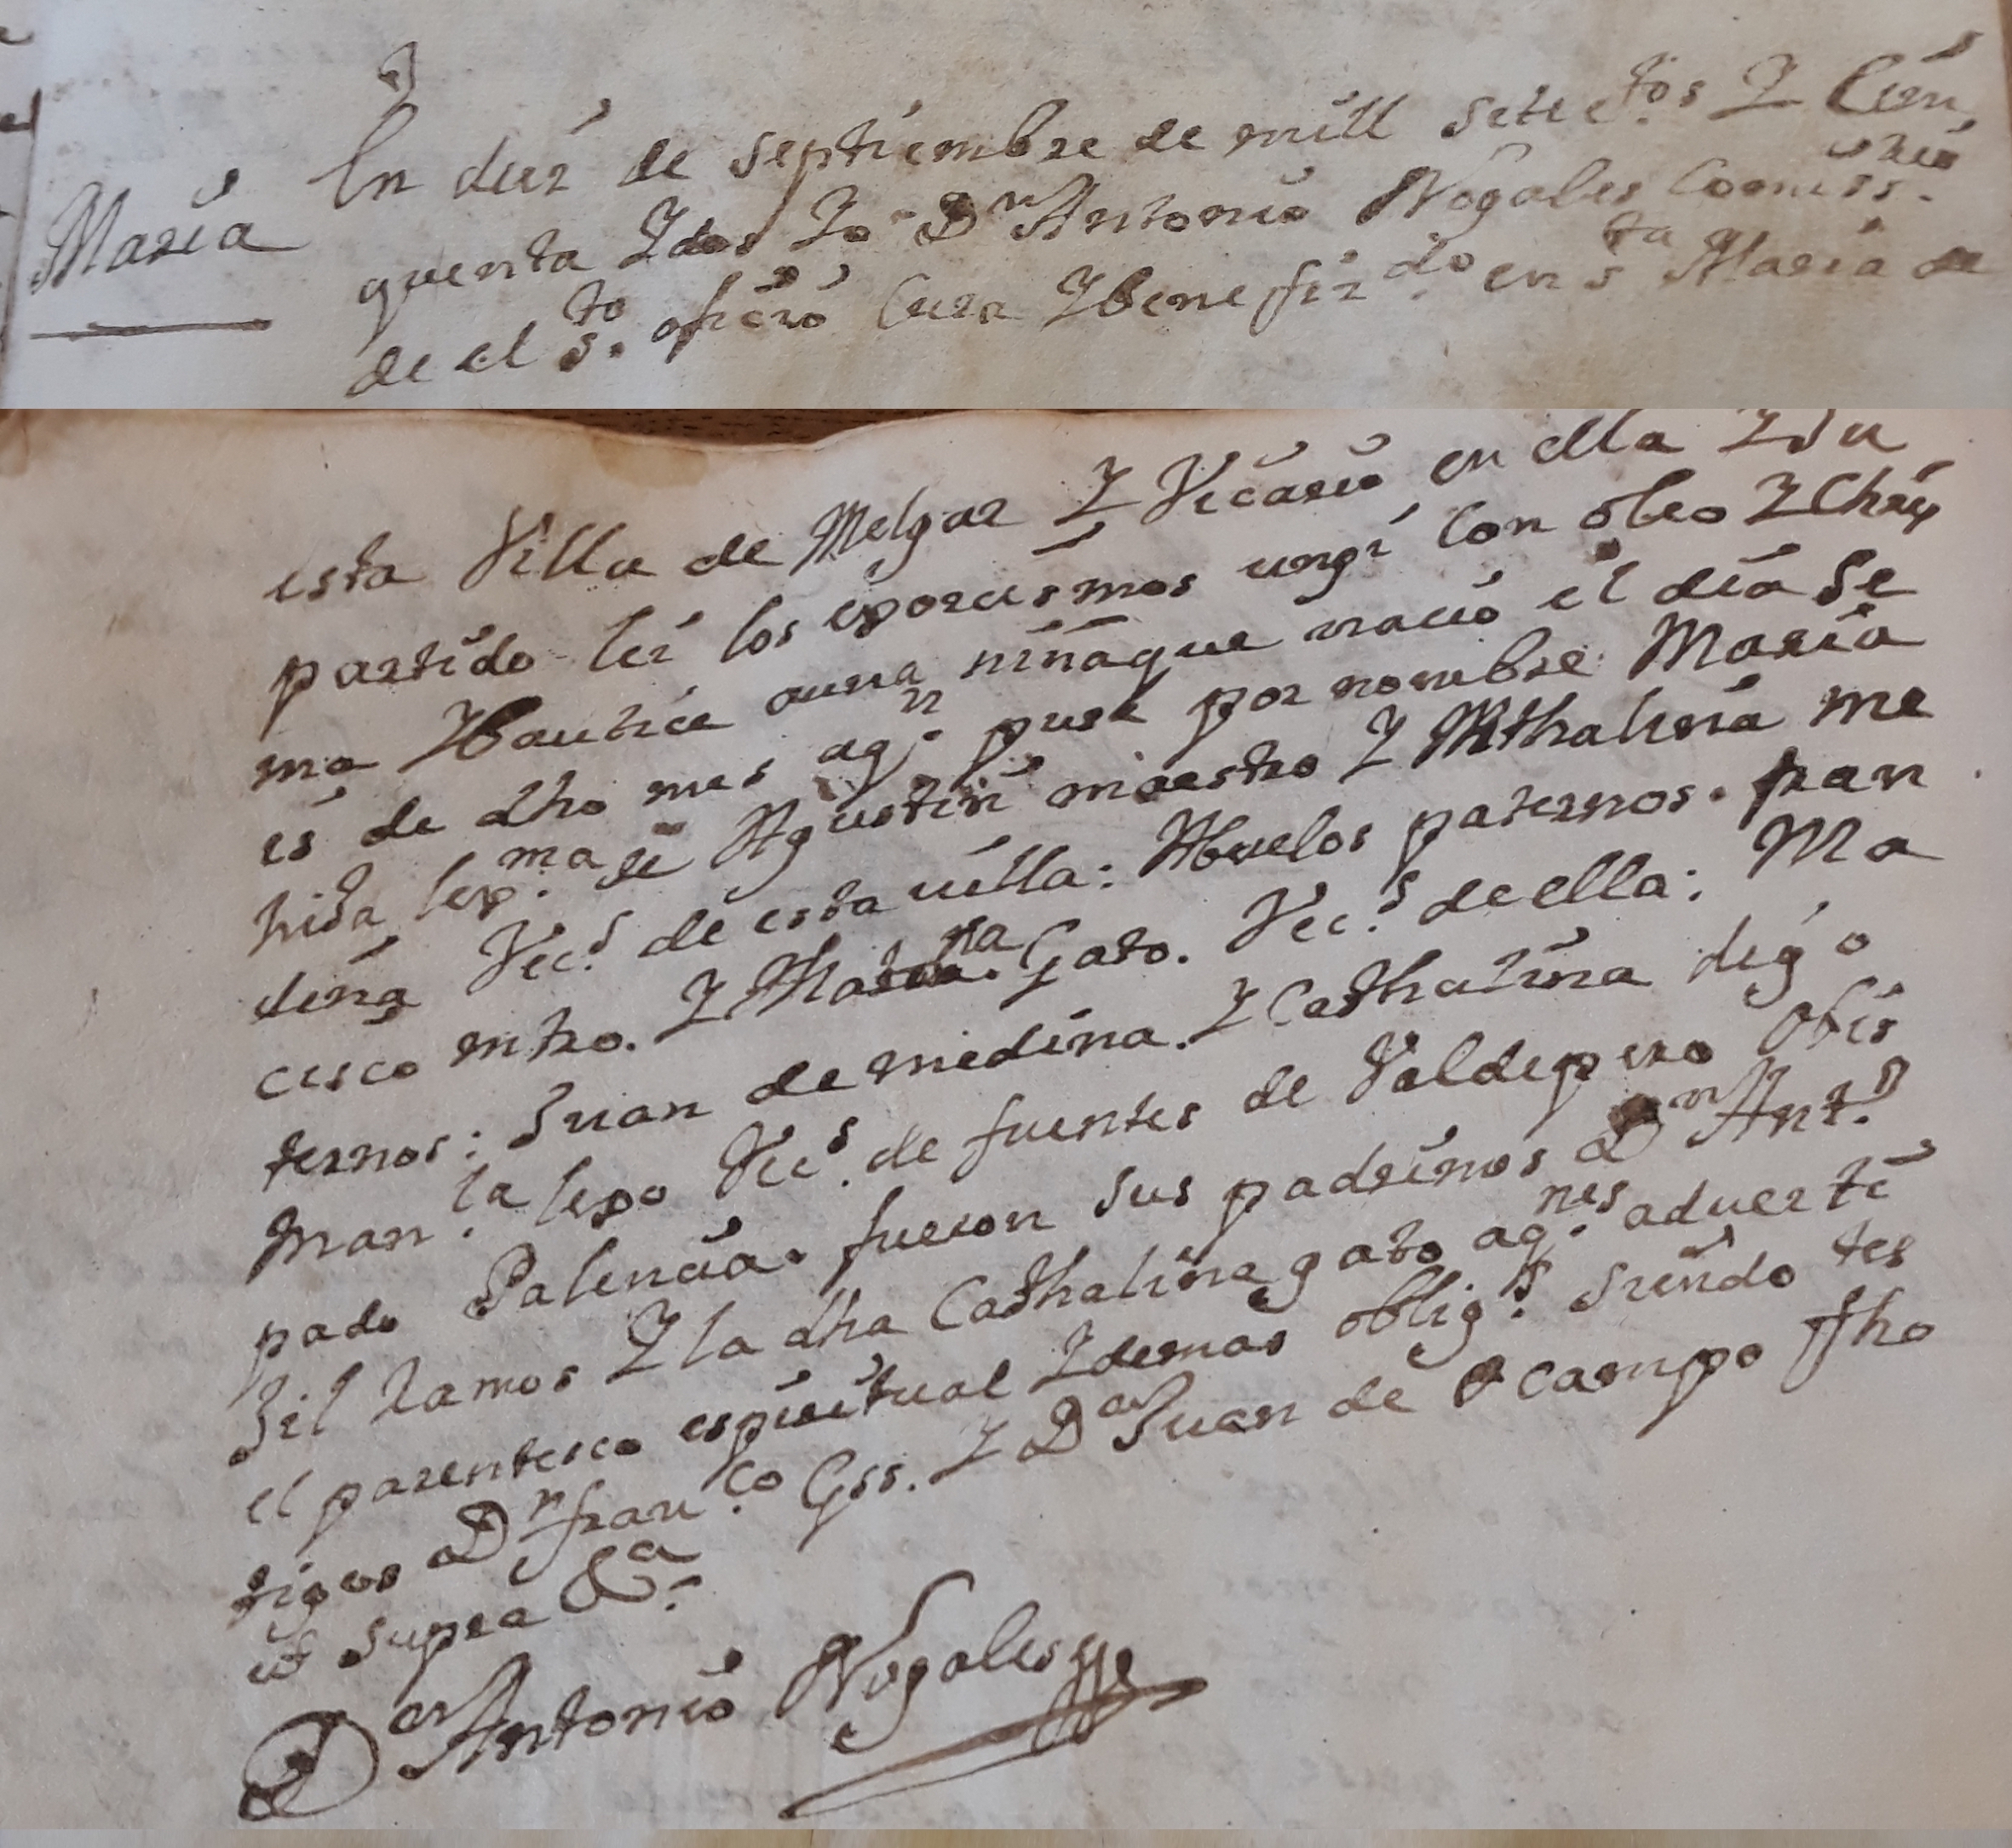 María
En diez de septiembre de mill setec.tos Y Cin
quenta Y dos Yo Dn Antonio Nogales Comiss.rio
de el s.to ofizio Cura Y benefiz.do en s.ta María de
esta Villa de Melgar Y Vicario en ella Y su
partido leí los exorcismos ungí con oleo Y Chris
ma Y bautice a una niña que nacio el día se
is de dho mes a q.n puse por nombre María
hida lex.ma de Agustin maestro Y Cathalina me
dina Vec.s de esta villa: Abuelos paternos. fran
cisco mtro. Y Gato. Vec.s de ella: Ma
ternos: Juan de medina. Y Cathalina digo
Man.la lexo Vec.s de fuentes de Valdepero obis
pado Palencia. fueron sus padrinos Dn Ant.o
Gil Ramos Y la dha Cathalina gato a q.nes adverti
el parentesco espiritual Y demas oblig.s siendo tes
tigos Dn fran.co Gss. Y Dn Juan de Ocampo ffho
ut supra &.a
Dn Antonio Nogales